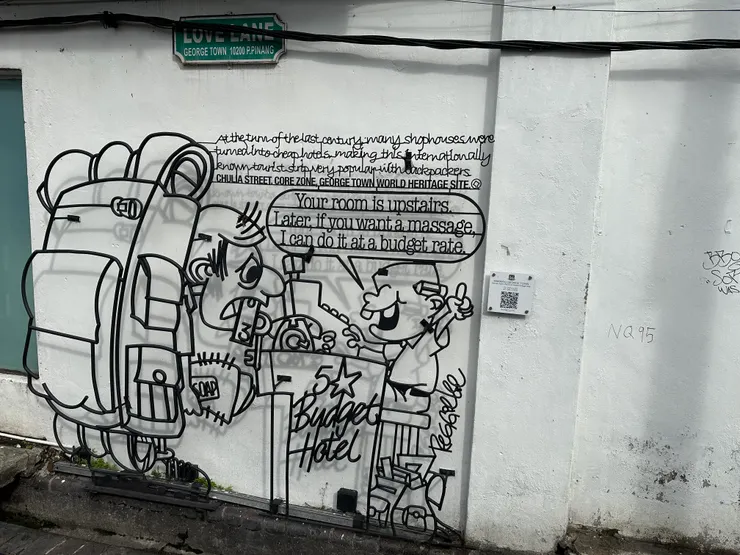 LOVE LANE
GEORGE TOWN 10200 P.PINANG
At the turn of the last century, many shophouses were
turned into cheap hotels, making this internationally
known tourist strip very popular with backpackers.
CHULIA STREET, CORE ZONE, GEORGE TOWN WORLD HERITAGE SITE
Your room is upstairs.
Later, if you want a massage,
I can do it at a budget rate.
35
SOAP
5
Budget
Hotel
NQ95